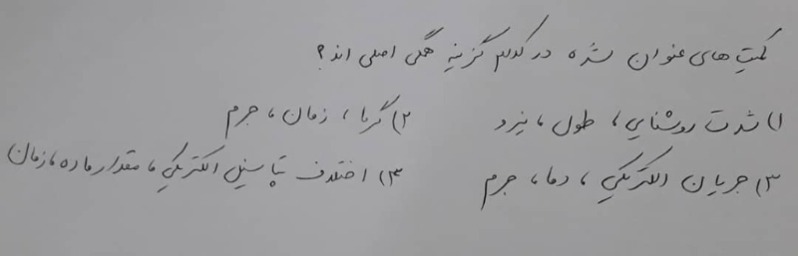 کمیت های عنوان شده در کدام گزینه همگی اصلی اند؟
۱) شدت روشنایی، طول، نیرو ۲) گرما، زمان، جرم
۳) جریان الکتریکی، دما، جرم ۴) اختلاف پتانسیل الکتریکی، مقدار ماده، زمان